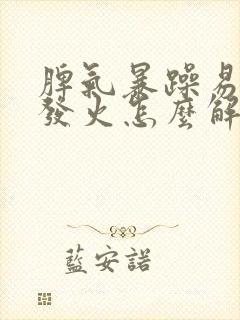 脾氣暴躁易
發火怎麼解
藍安諾